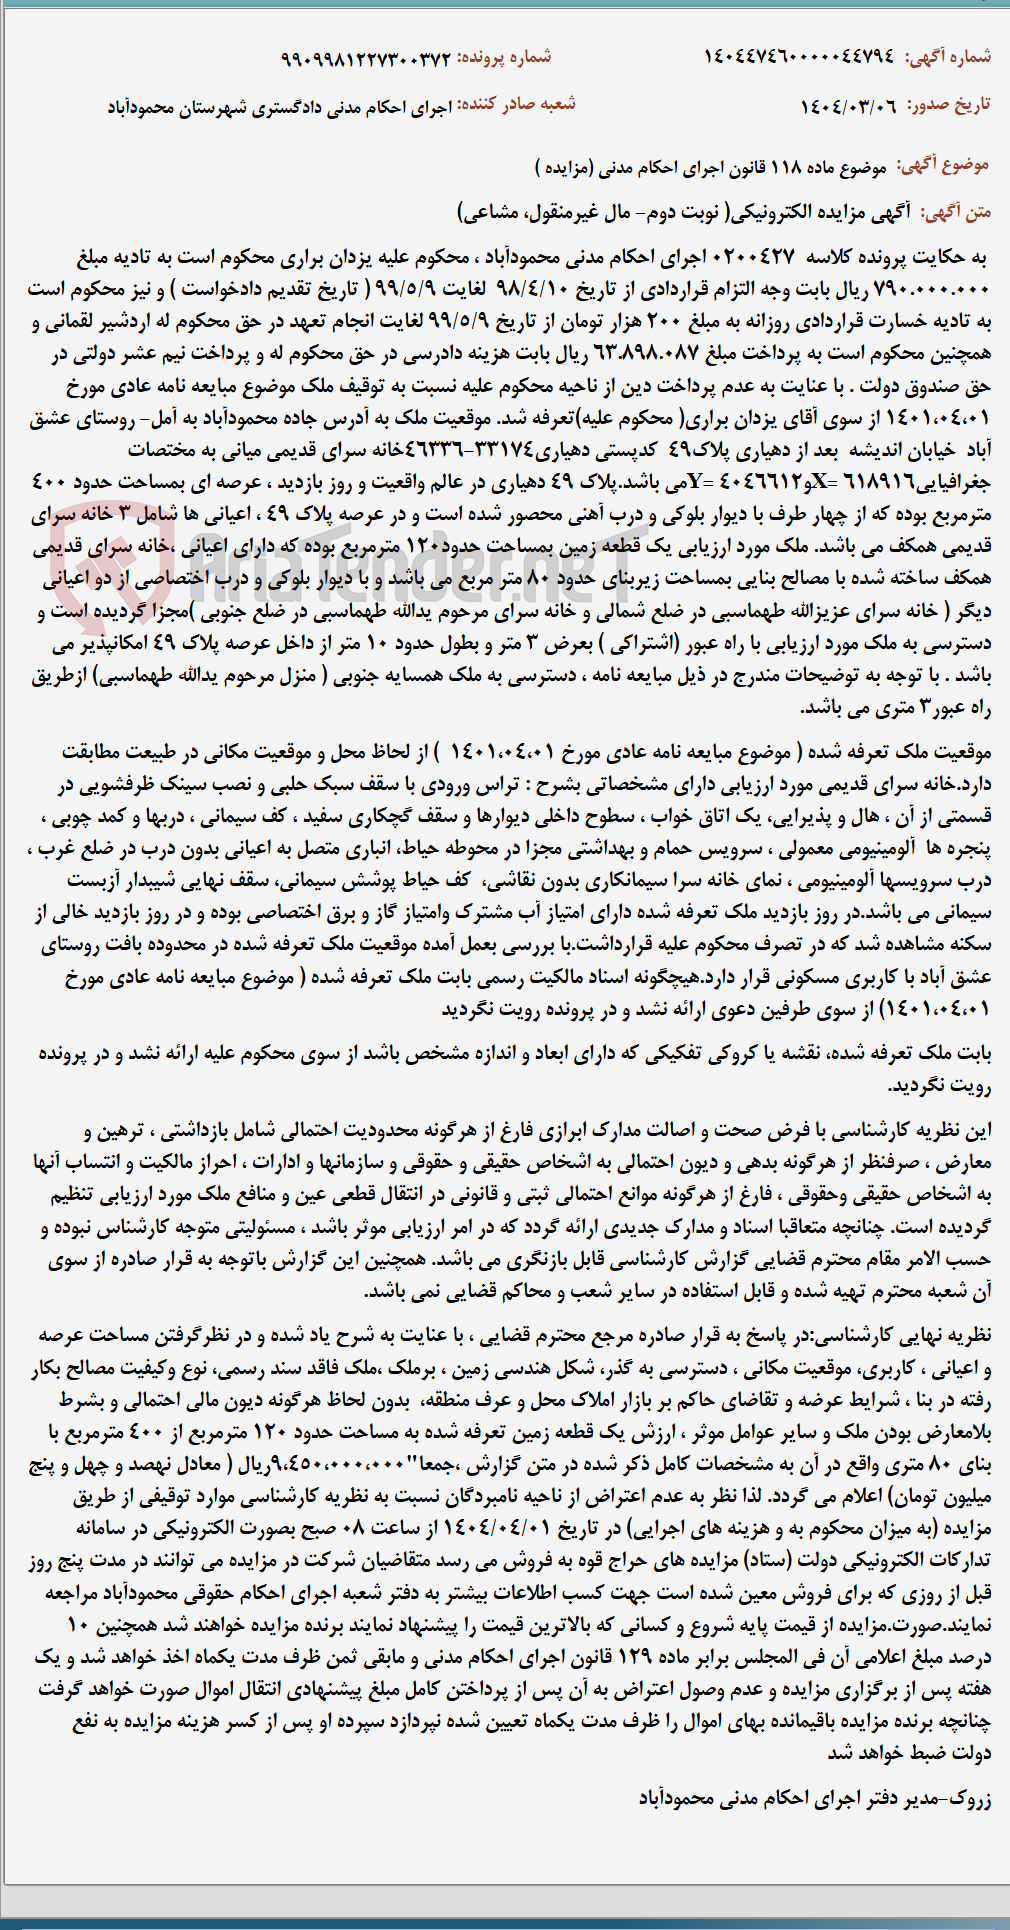 شماره آگهی: ۱۴۰۴۴۷۴۶۰۰۰۰۰۴۴۷۹۴ شماره پرونده: ۹۹۰۹۹۸۱۲۲۷۳۰۰۳۷۲
تاریخ صدور: ۱۴۰۴/۰۳/۰۶ شعبه صادر کننده: اجرای احکام مدنی دادگستری شهرستان محمودآباد
موضوع آگهی: موضوع ماده ۱۱۸ قانون اجرای احکام مدنی (مزایده )
متن آگهی: آگهی مزایده الکترونیکی( نوبت دوم- مال غیرمنقول، مشاعی)
به حکایت پرونده کلاسه ۰۲۰۰۴۲۷ اجرای احکام مدنی محمودآباد ، محکوم علیه یزدان براری محکوم است به تادیه مبلغ
۷۹۰.۰۰۰.۰۰۰ ریال بابت وجه التزام قراردادی از تاریخ ۹۸/۴/۱۰ لغایت ۹۹/۵/۹ ( تاریخ تقدیم دادخواست ) و نیز محکوم است
به تادیه خسارت قراردادی روزانه به مبلغ ۲۰۰ هزار تومان از تاریخ ۹۹/۵/۹ لغایت انجام تعهد در حق محکوم له اردشیر لقمانی و
همچنین محکوم است به پرداخت مبلغ ۶۳.۸۹۸.۰۸۷ ریال بابت هزینه دادرسی در حق محکوم له و پرداخت نیم عشر دولتی در
حق صندوق دولت . با عنایت به عدم پرداخت دین از ناحیه محکوم علیه نسبت به توقیف ملک موضوع مبایعه نامه عادی مورخ
۱۴۰۱،۰۴،۰۱ از سوی آقای یزدان براری( محکوم علیه)تعرفه شد. موقعیت ملک به آدرس جاده محمودآباد به آمل- روستای عشق
آباد خیابان اندیشه بعد از دهیاری پلاک۴۹ کدپستی دهیاری۳۳۱۷۴-۴۶۳۳۶خانه سرای قدیمی میانی به مختصات
جغرافیایی۶۱۸۹۱۶ =Xو۴۰۴۶۶۱۲ =Yمی باشد.پلاک ۴۹ دهیاری در عالم واقعیت و روز بازدید ، عرصه ای بمساحت حدود ۴۰۰
مترمربع بوده که از چهار طرف با دیوار بلوکی و درب آهنی محصور شده است و در عرصه پلاک ۴۹ ، اعیانی ها شامل ۳ خانه سرای
قدیمی همکف می باشد. ملک مورد ارزیابی یک قطعه زمین بمساحت حدود۱۲۰ مترمربع بوده که دارای اعیانی ،خانه سرای قدیمی
همکف ساخته شده با مصالح بنایی بمساحت زیربنای حدود ۸۰ متر مربع می باشد و با دیوار بلوکی و درب اختصاصی از دو اعیانی
دیگر ( خانه سرای عزیزالله طهماسبی در ضلع شمالی و خانه سرای مرحوم یدالله طهماسبی در ضلع جنوبی )مجزا گردیده است و
دسترسی به ملک مورد ارزیابی با راه عبور (اشتراکی ) بعرض ۳ متر و بطول حدود ۱۰ متر از داخل عرصه پلاک ۴۹ امکانپذیر می
باشد . با توجه به توضیحات مندرج در ذیل مبایعه نامه ، دسترسی به ملک همسایه جنوبی ( منزل مرحوم یدالله طهماسبی) ازطریق
راه عبور۳ متری می باشد.
موقعیت ملک تعرفه شده ( موضوع مبایعه نامه عادی مورخ ۱۴۰۱،۰۴،۰۱ ) از لحاظ محل و موقعیت مکانی در طبیعت مطابقت
دارد.خانه سرای قدیمی مورد ارزیابی دارای مشخصاتی بشرح : تراس ورودی با سقف سبک حلبی و نصب سینک ظرفشویی در
قسمتی از آن ، هال و پذیرایی، یک اتاق خواب ، سطوح داخلی دیوارها و سقف گچکاری سفید ، کف سیمانی ، دربها و کمد چوبی ،
پنجره ها آلومینیومی معمولی ، سرویس حمام و بهداشتی مجزا در محوطه حیاط، انباری متصل به اعیانی بدون درب در ضلع غرب ،
درب سرویسها آلومینیومی ، نمای خانه سرا سیمانکاری بدون نقاشی، کف حیاط پوشش سیمانی، سقف نهایی شیبدار آزبست
سیمانی می باشد.در روز بازدید ملک تعرفه شده دارای امتیاز آب مشترک وامتیاز گاز و برق اختصاصی بوده و در روز بازدید خالی از
سکنه مشاهده شد که در تصرف محکوم علیه قرارداشت.با بررسی بعمل آمده موقعیت ملک تعرفه شده در محدوده بافت روستای
عشق آباد با کاربری مسکونی قرار دارد.هیچگونه اسناد مالکیت رسمی بابت ملک تعرفه شده ( موضوع مبایعه نامه عادی مورخ
۱۴۰۱،۰۴،۰۱) از سوی طرفین دعوی ارائه نشد و در پرونده رویت نگردید
بابت ملک تعرفه شده، نقشه یا کروکی تفکیکی که دارای ابعاد و اندازه مشخص باشد از سوی محکوم علیه ارائه نشد و در پرونده
رویت نگردید.
این نظریه کارشناسی با فرض صحت و اصالت مدارک ابرازی فارغ از هرگونه محدودیت احتمالی شامل بازداشتی ، ترهین و
معارض ، صرفنظر از هرگونه بدهی و دیون احتمالی به اشخاص حقیقی و حقوقی و سازمانها و ادارات ، احراز مالکیت و انتساب آنها
به اشخاص حقیقی وحقوقی ، فارغ از هرگونه موانع احتمالی ثبتی و قانونی در انتقال قطعی عین و منافع ملک مورد ارزیابی تنظیم
گردیده است. چنانچه متعاقبا اسناد و مدارک جدیدی ارائه گردد که در امر ارزیابی موثر باشد ، مسئولیتی متوجه کارشناس نبوده و
حسب الامر مقام محترم قضایی گزارش کارشناسی قابل بازنگری می باشد. همچنین این گزارش باتوجه به قرار صادره از سوی
آن شعبه محترم تهیه شده و قابل استفاده در سایر شعب و محاکم قضایی نمی باشد.
نظریه نهایی کارشناسی:در پاسخ به قرار صادره مرجع محترم قضایی ، با عنایت به شرح یاد شده و در نظرگرفتن مساحت عرصه
و اعیانی ، کاربری، موقعیت مکانی ، دسترسی به گذر، شکل هندسی زمین ، برملک ،ملک فاقد سند رسمی، نوع وکیفیت مصالح بکار
رفته در بنا ، شرایط عرضه و تقاضای حاکم بر بازار املاک محل و عرف منطقه، بدون لحاظ هرگونه دیون مالی احتمالی و بشرط
بلامعارض بودن ملک و سایر عوامل موثر ، ارزش یک قطعه زمین تعرفه شده به مساحت حدود ۱۲۰ مترمربع از ۴۰۰ مترمربع با
بنای ۸۰ متری واقع در آن به مشخصات کامل ذکر شده در متن گزارش ،جمعا"۹،۴۵۰،۰۰۰،۰۰۰ریال ( معادل نهصد و چهل و پنج
میلیون تومان) اعلام می گردد. لذا نظر به عدم اعتراض از ناحیه نامبردگان نسبت به نظریه کارشناسی موارد توقیفی از طریق
مزایده (به میزان محکوم به و هزینه های اجرایی) در تاریخ ۱۴۰۴/۰۴/۰۱ از ساعت ۰۸ صبح بصورت الکترونیکی در سامانه
تدارکات الکترونیکی دولت (ستاد) مزایده های حراج قوه به فروش می رسد متقاضیان شرکت در مزایده می توانند در مدت پنج روز
قبل از روزی که برای فروش معین شده است جهت کسب اطلاعات بیشتر به دفتر شعبه اجرای احکام حقوقی محمودآباد مراجعه
نمایند.صورت.مزایده از قیمت پایه شروع و کسانی که بالاترین قیمت را پیشنهاد نمایند برنده مزایده خواهند شد همچنین ۱۰
درصد مبلغ اعلامی آن فی المجلس برابر ماده ۱۲۹ قانون اجرای احکام مدنی و مابقی ثمن ظرف مدت یکماه اخذ خواهد شد و یک
هفته پس از برگزاری مزایده و عدم وصول اعتراض به آن پس از پرداختن کامل مبلغ پیشنهادی انتقال اموال صورت خواهد گرفت
چنانچه برنده مزایده باقیمانده بهای اموال را ظرف مدت یکماه تعیین شده نپردازد سپرده او پس از کسر هزینه مزایده به نفع
دولت ضبط خواهد شد
زروک-مدیر دفتر اجرای احکام مدنی محمودآباد
AriaTender.neT